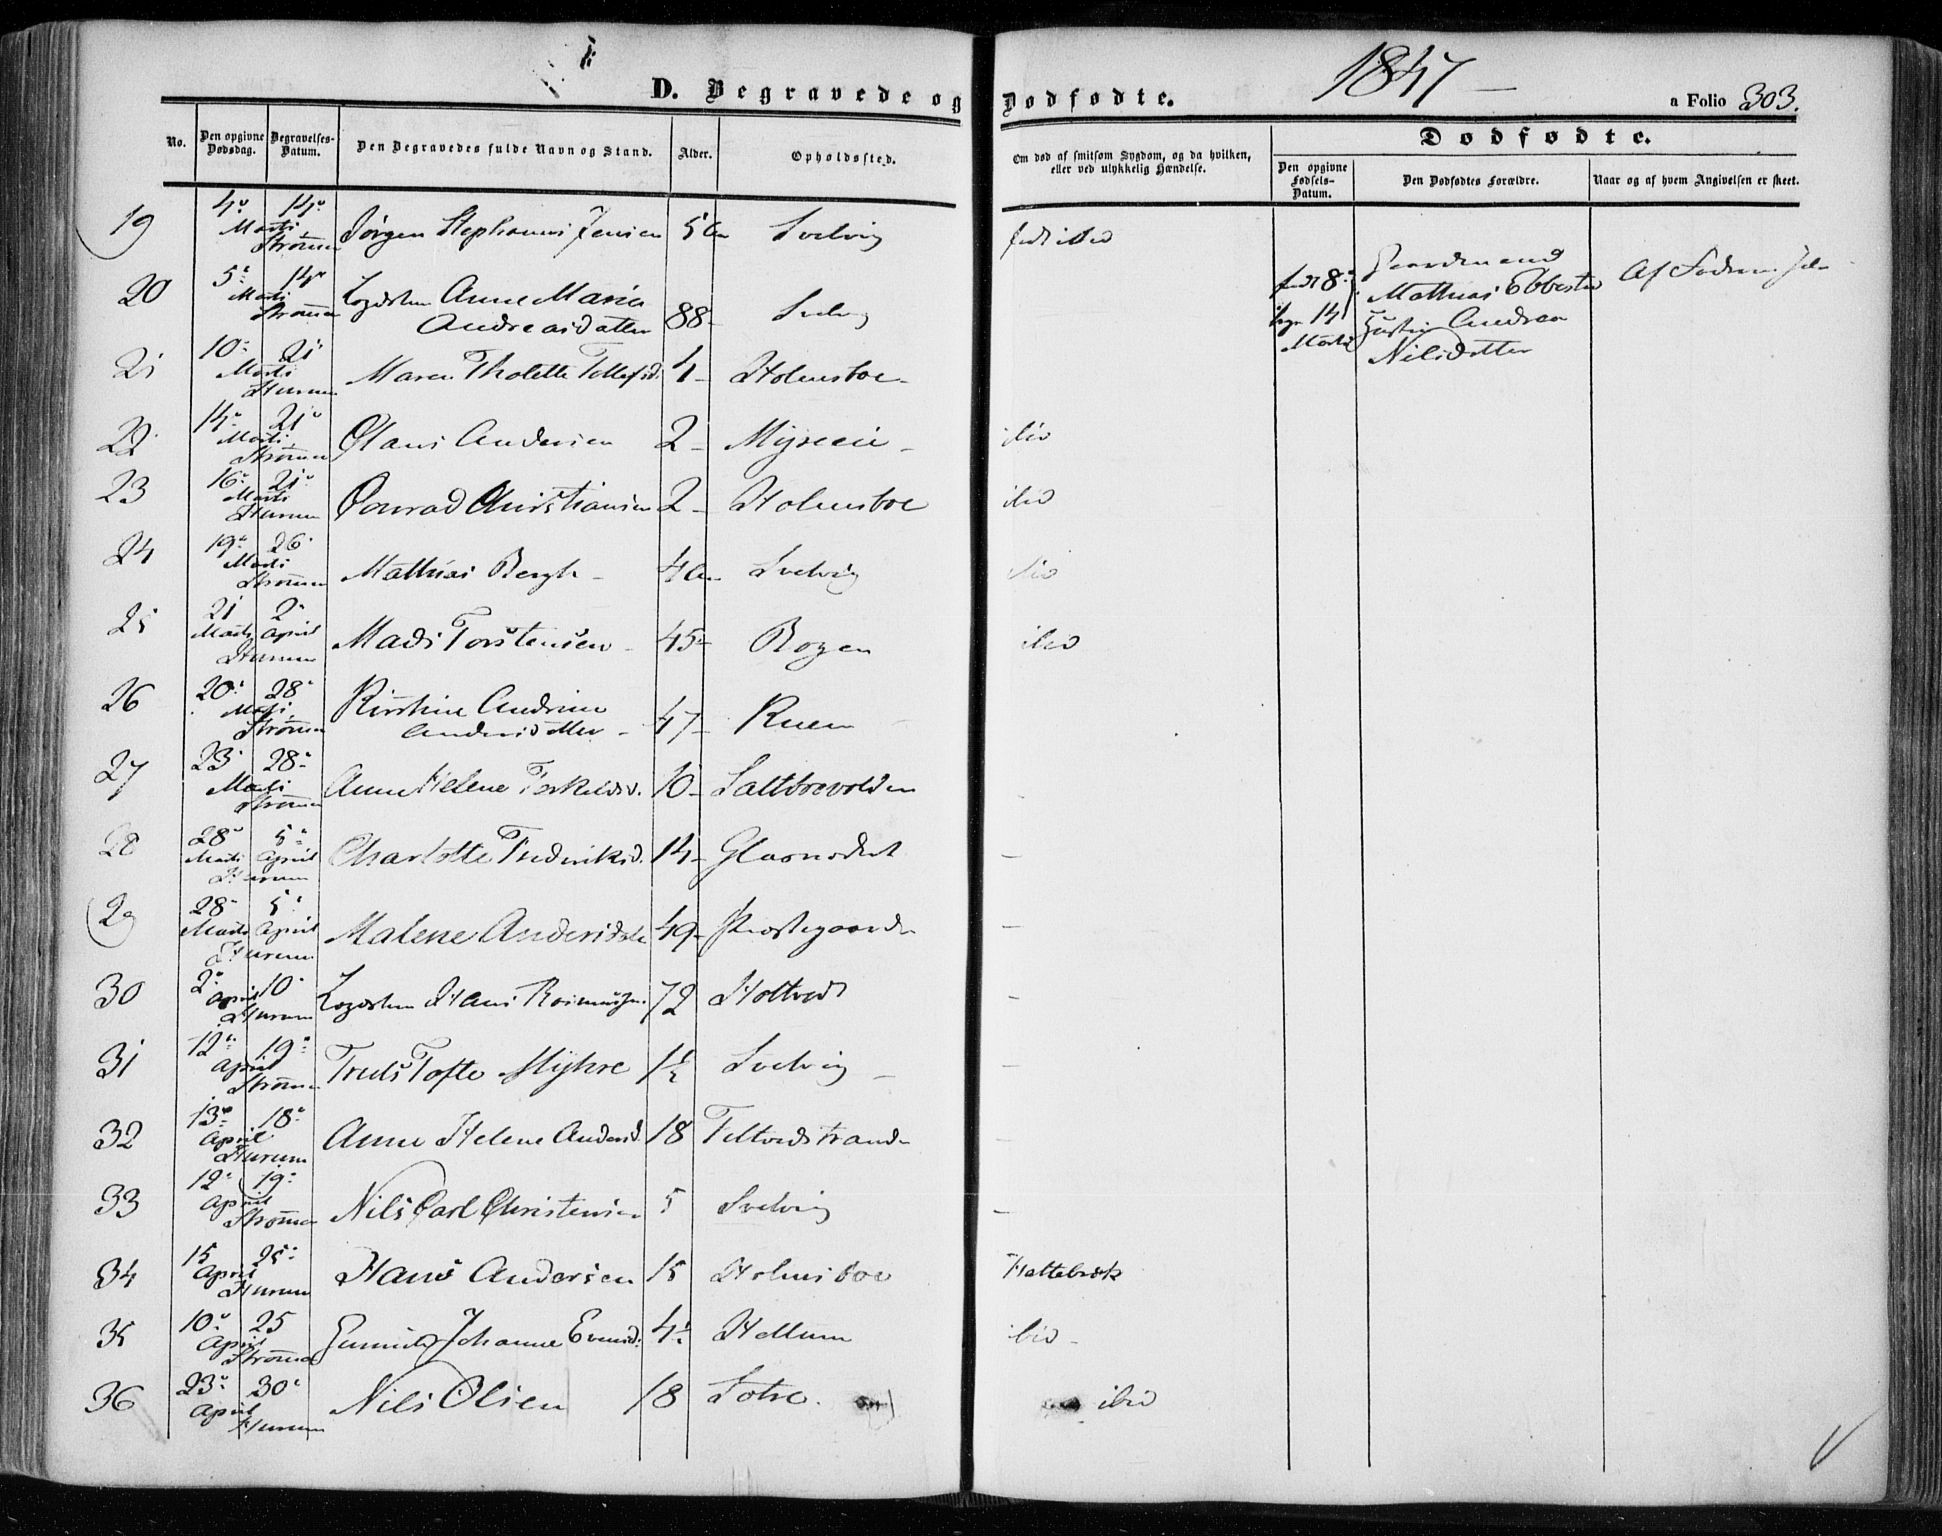 D. Begravede og Dødfødte. 1847 a Folio 303.
No. Den opgivne Dødsdag. Begravelses-Datum. Den Begravedes fulde Navn og Stand. Alder. Opholdssted.
Om død af smitsom Sygdom, og da hvilken, eller ved ulykkelig Hændelse.
Dødfødte.
Den opgivne Fødsels-Datum. Den Dødfødtes Forældre. Naar og af hvem Angivelsen er skeet.
19 4 Marti 14 Strømm Jørgen Stephanus Jensen Svelvig
20 5 Marti 14 Strømm Logdslem Anne Maria Andreasdatter 88 Svelvig
8 14 Marti Gaardmand Mathias Andrea Nilsdatter
21 10 Marti 21 Hurum Maren Tholette Tollefsd. 4 Holmsboe
22 14 Marti 21 Strømm Olaus Andersen 2 Myreeie ibid
23 16 Marti 21 Hurum Conrad Christiansen 2 Holmsboe ibid
24 19 Marti 26 Strømm Mathias Bergh Svelvig ibid
25 21 Marti 2 April Hurum Mads Torstensen 45 Rogen ibid
26 20 Marti 28 Strømm Kirstine Andrine Andersdatter 47 Ruen
27 23 Marti 28 Strømm Anne Helene Terkelsd. 10 Saltbrevolden
28 28 Marti 5 April Hurum Charlotte Frederiksd. 14
29 28 Marti 5 April Hurum Malene Andersdatt 49 Præstegaarden
30 2 April 10 Hurum Logdslem Hans Rasmussen 72 Holtvedt
31 12 April 19 Strømm Truls Tofte Myhre 1½ Svelvig
32 13 April 18 Hurum Anne Helene Andersd. 18 Feltvedstrand
33 12 April 19 Strømm Nils Carl Christensen 5 Svelvig
34 15 April 25 Hurum Hans Andersen 15 Holmsboe
35 10 April 25 Strømm Gunnild Johanne Evensd. Hellum ibid
36 23 April 30 Hurum Nils Olsen 18 Sotre ibid